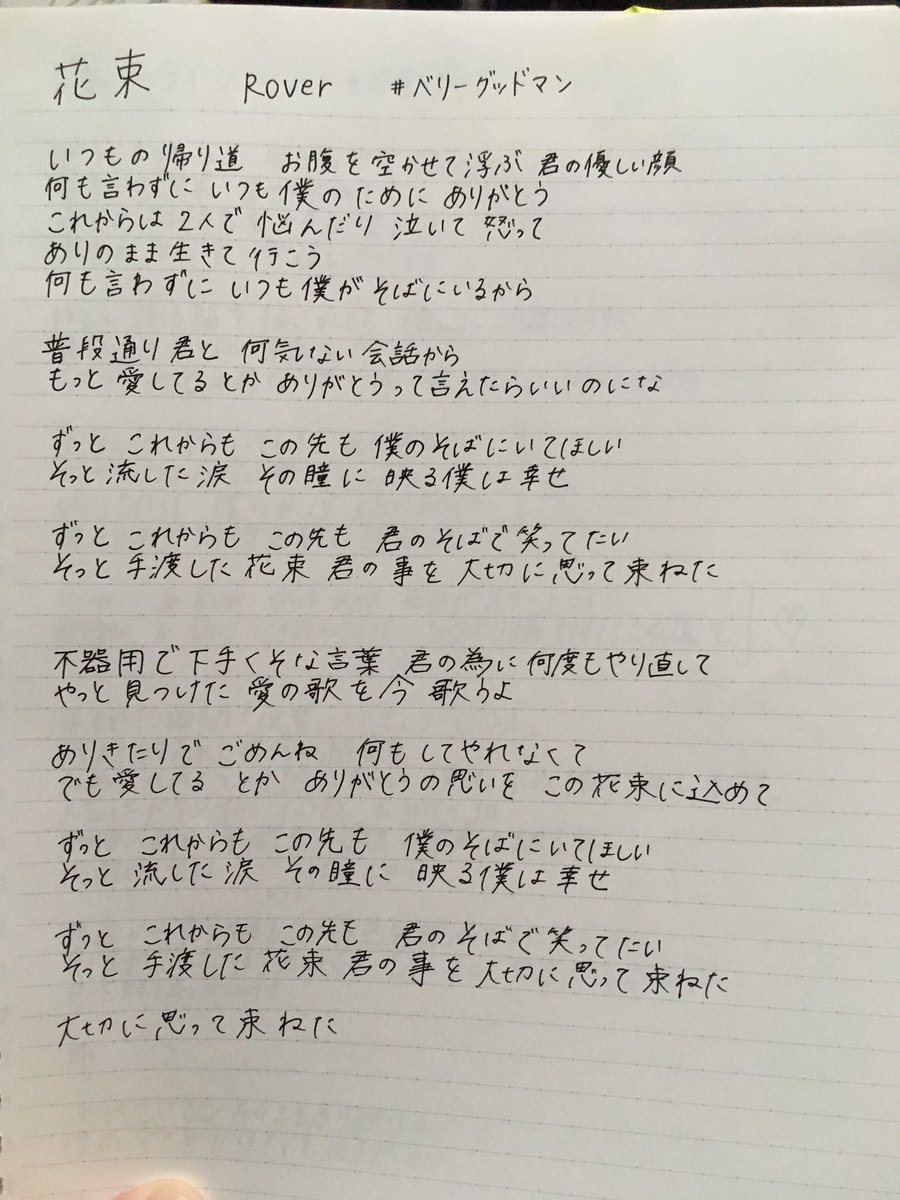 花束 Rover #ベリーグッドマン
いつもの帰り道 お腹を空かせて浮ぶ 君の優しい顔
何も言わずに いつも僕の ために ありがとう
これからは 2人で 悩んだり 泣いて 怒って
ありのまま生きて行こう
何も言わずに いつも僕が そばにいるから
普段通り 君と 何気ない会話から
もっと 愛してるとか ありがとうって言えたらいいのにな
ずっと これからも この先も 僕のそばにいてほしい
そっと流した涙 その瞳に 映る僕は幸せ
ずっと これからも この先も 君のそばで笑ってたい
そっと 手渡した 花束 君の事を 大切に思って束ねた
不器用で下手くそな言葉 君の為に何度もやり直して
やっと見つけた 愛の歌を今 歌うよ
ありきたりで ごめんね 何もしてやれなくて
でも愛してる とか ありがとうの思いを この花束に込めて
ずっと これからも この先も 僕のそばにいてほしい
そっと 流した涙 その瞳に 映る僕は幸せ
ずっと これからも この先も 君のそばで笑ってたい
そっと 手渡した 花束 君の事を 大切に思って 束ねた
大切に思って束ねた